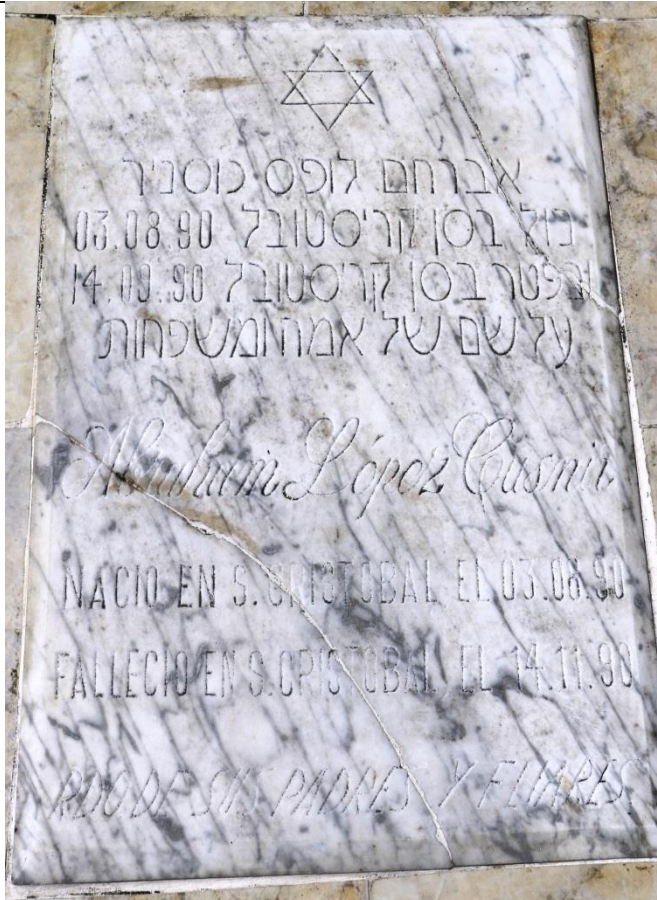 אברהם לופס כוסניר
נולד בסן קריסטובל 03.08.90
נפטר בסן קריסטובל 14.09.90
על שם של אמה ומשפחות
Abraham López Cusnir
NACIO EN S. CRISTOBAL EL 03.08.90
FALLECIO EN S. CRISTOBAL, EL 14.11.90
RDO DE SUS PADRES Y FLIARES